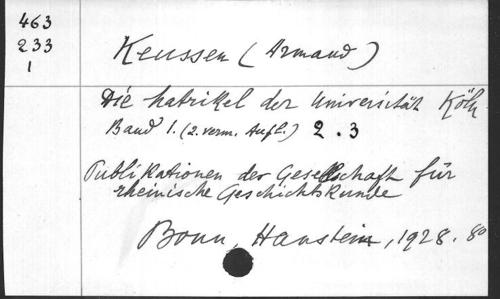 463
233
1
Keussen (Armand)
Die Matrikel der Universität Köln
Band 1. (2. verm. Aufl.) 2. 3
Publikationen der Gesellschaft für
rheinische Geschichtskunde
Bonn, Hanstein, 1928. 80